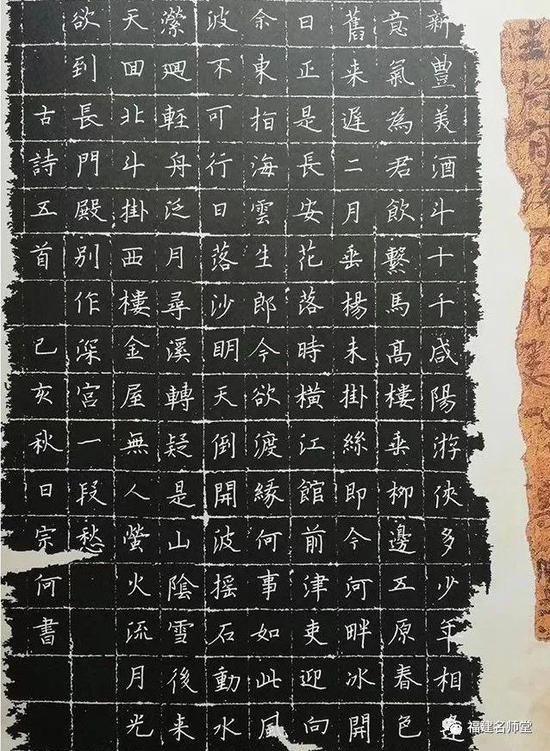 新豐美酒斗十千咸陽游俠多少年相
意氣為君飲繫馬高樓垂柳邊五原春色
舊来遲二月垂楊未掛絲即今河畔冰開
日正是長安花落時橫江館前津吏迎向
余東指海雲生郎今欲渡緣何事如此風
波不可行日落沙明天倒開波摇石動水
縈廻輕舟泛月尋溪轉疑是山陰雪後来
天回北斗掛西樓金屋無人螢火流月光
欲到長門殿別作深宮一段愁
古詩五首 己亥秋日宗何書
福建名师堂